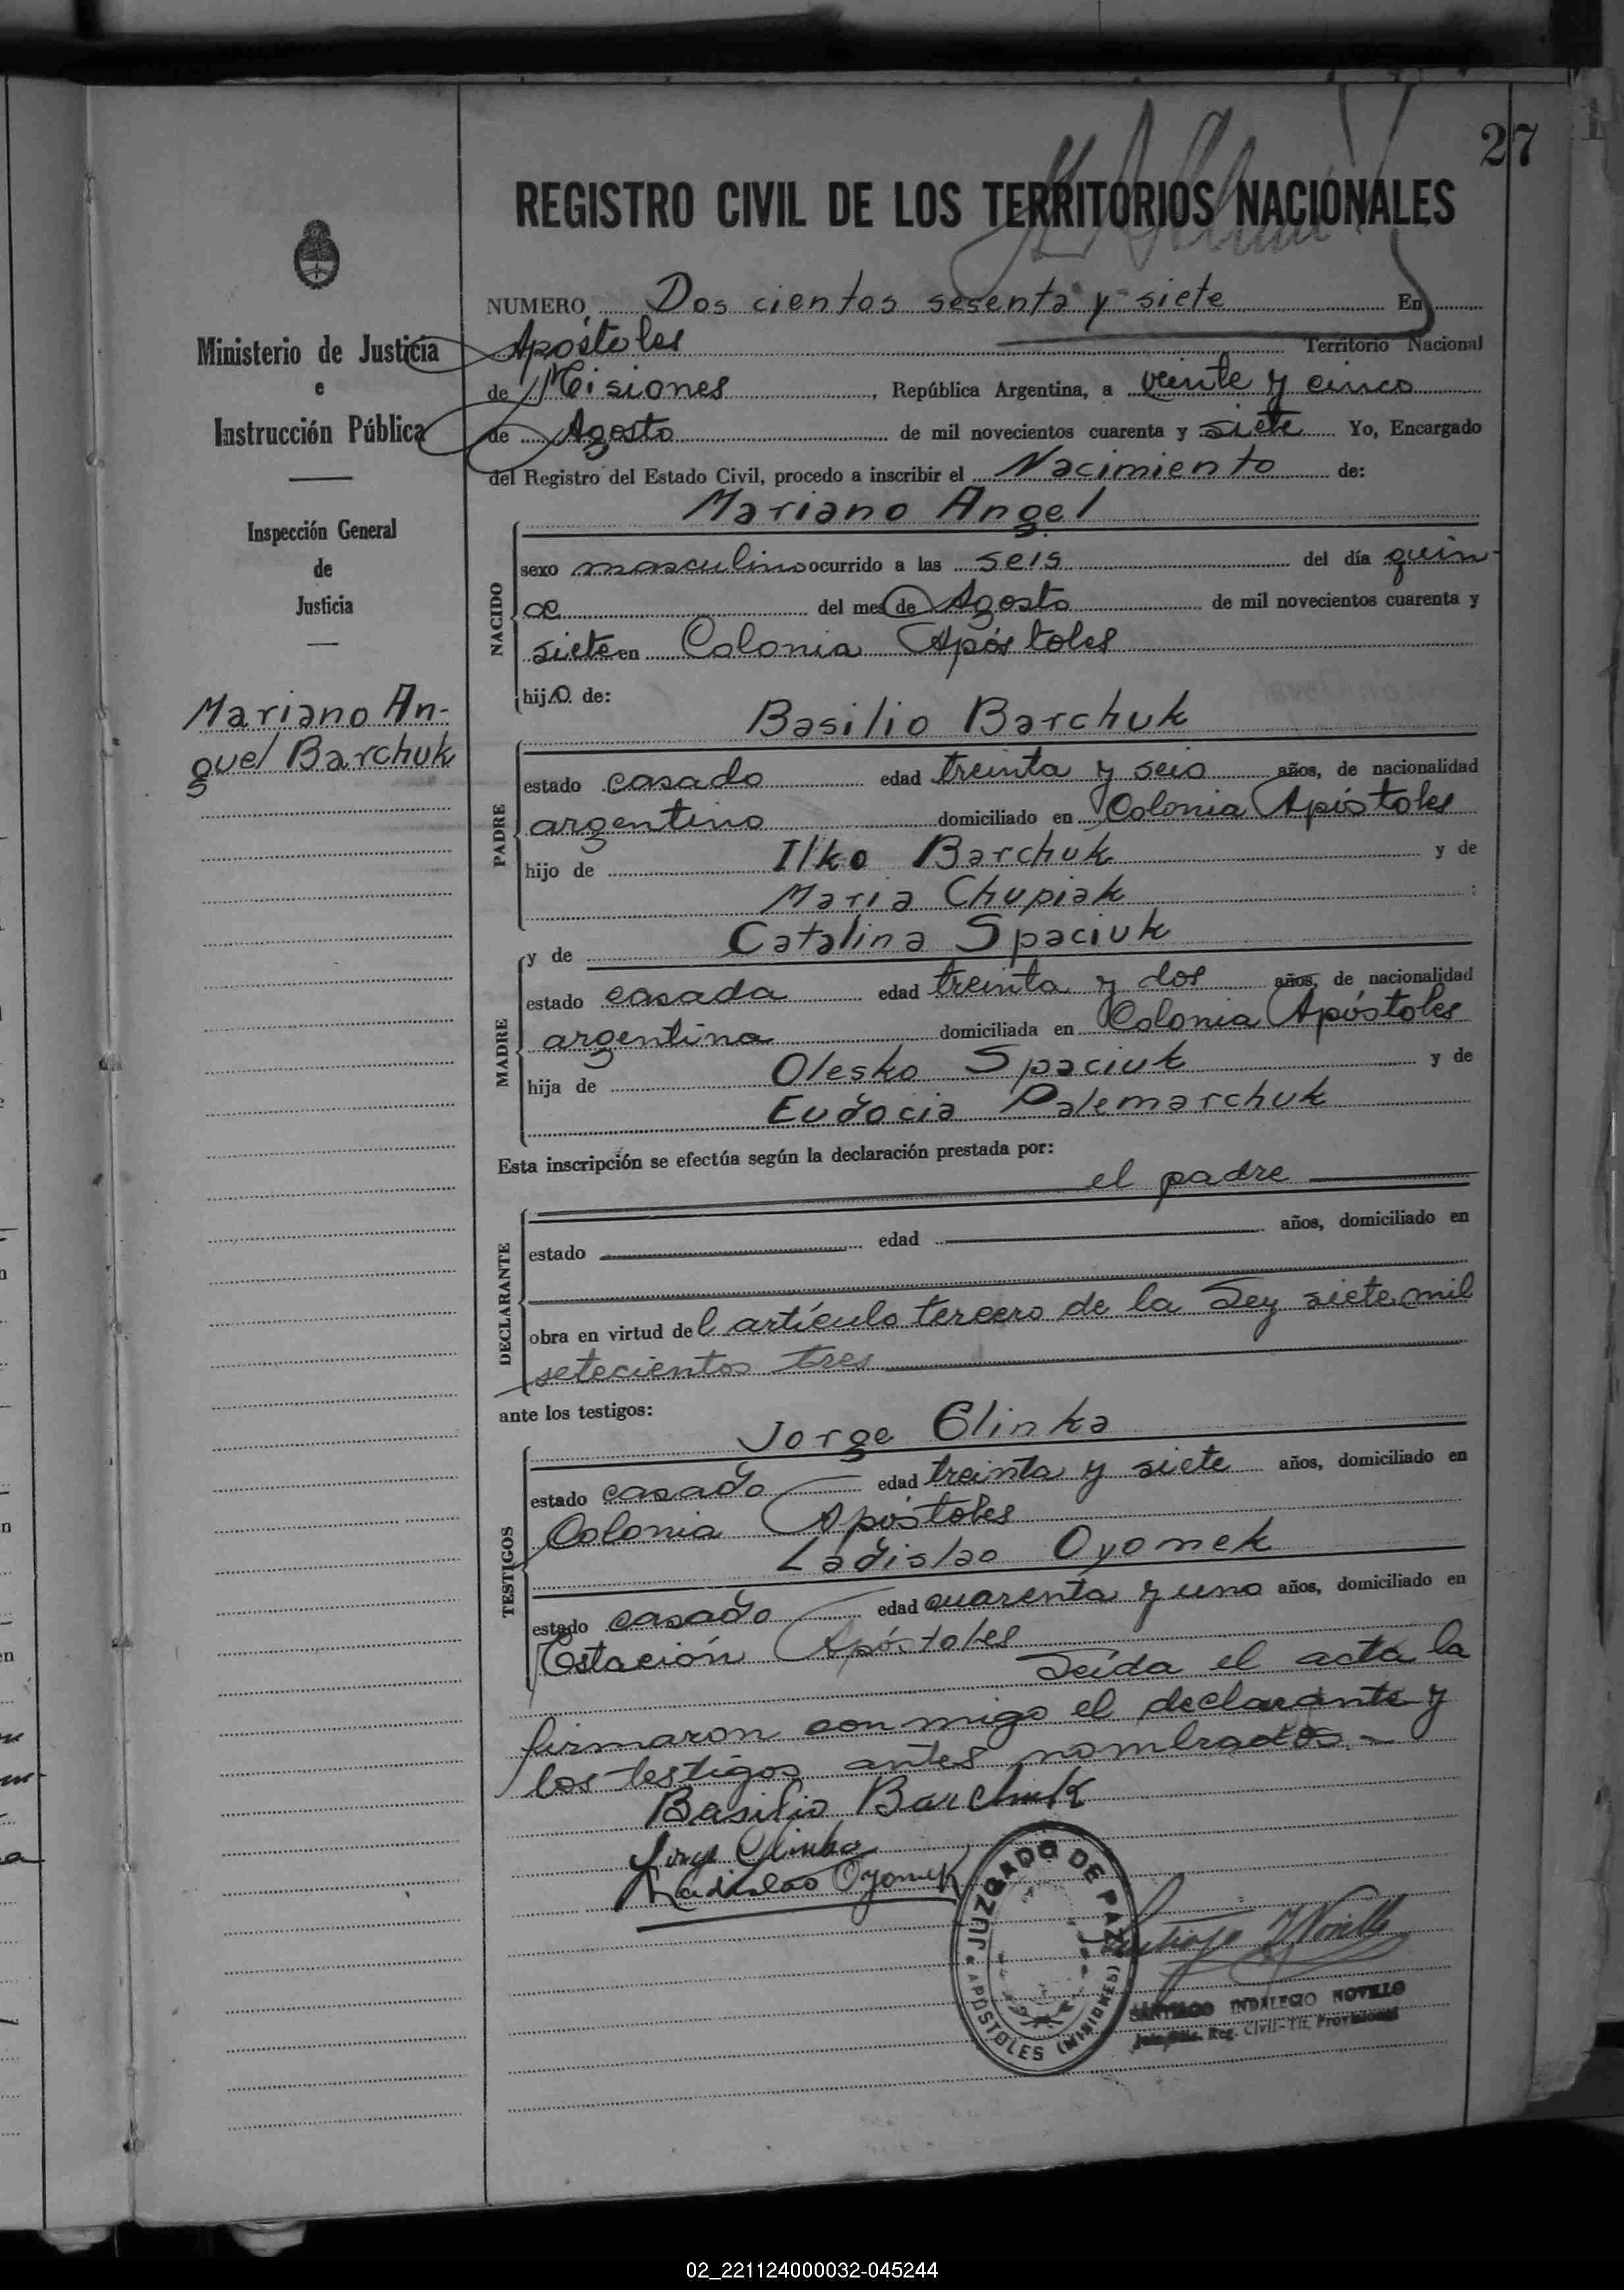 27
REGISTRO CIVIL DE LOS TERRITORIOS NACIONALES
Ministerio de Justicia
e
Instrucción Pública
Inspección General
de
Justicia
Mariano An-
guel Barchuk
NUMERO Dos cientos sesenta y siete En
Apóstoles Territorio Nacional
de Misiones, República Argentina, a veinte y cinco
de Agosto de mil novecientos cuarenta y siete Yo, Encargado
del Registro del Estado Civil, procedo a inscribir el Nacimiento de:
NACIDO
Mariano Angel
sexo masculino ocurrido a las seis del día quin-
ce del mes de Agosto de mil novecientos cuarenta y
siete en Colonia Apóstoles
hijo de:
PADRE
Basilio Barchuk
estado casado edad treinta y seis años, de nacionalidad
argentino domiciliado en Colonia Apóstoles
hijo de Ilko Barchuk y de
Maria Chupiak :
MADRE
y de Catalina Spaciuk
estado casada edad treinta y dos años, de nacionalidad
argentina domiciliada en Colonia Apóstoles
hija de Olesko Spaciuk y de
Eudocia Palemarchuk
Esta inscripción se efectúa según la declaración prestada por:
el padre
DECLARANTE
estado edad años, domiciliado en
obra en virtud del artículo tercero de la Ley siete mil
setecientos tres
ante los testigos:
TESTIGOS
Jorge Glinka
estado casado edad treinta y siete años, domiciliado en
Colonia Apóstoles
Ladislao Oyonek
estado casado edad cuarenta y uno años, domiciliado en
Estación Apóstoles
Leída el acta la
firmaron con migo el declarante y
los testigos antes nombrados.-
Basilio Barchuk
Jorge Glinka
Ladislao Oyonek
JUZGADO DE PAZ
APOSTOLES (MISIONES)
SANTIAGO INDALECIO NOVILLO
Reg. Civil - Tit. Provisional
02_221124000032-045244